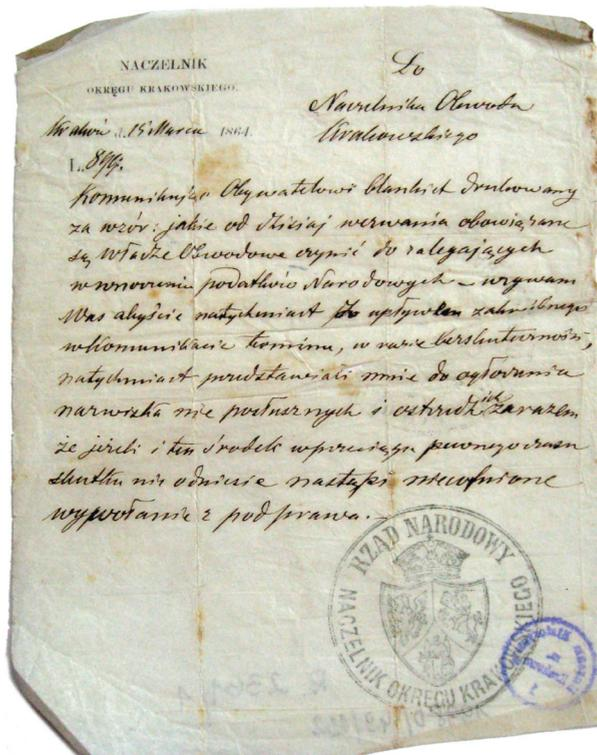 NACZELNIK
OKRĘGU KRAKOWSKIEGO.
Do
Naczelnika Obwodu
Krakowskiego
Kraków d. 15 Marca 1864.
L. 899.
Komunikując Obywatelowi blankiet drukowany
za wzór: jakie od dzisiaj wezwania obowiązane
są Władze Obwodowe czynić do zalegających
w wnoszeniu podatków Narodowych – wzywam
Was abyście natychmiast po upływem zakreślonego
w Komunikacie terminu, w razie bezskuteczności,
natychmiast przedstawiali mnie do ogłoszenia
nazwiska nie posłusznych i ostrzedz ich zarazem
że jeżeli i ten środek w przeciągu pewnego czasu
skutku nie odniesie nastąpi niecofnione
wywołanie z pod prawa.
RZĄD NARODOWY
NACZELNIK OKRĘGU KRAKOWSKIEGO